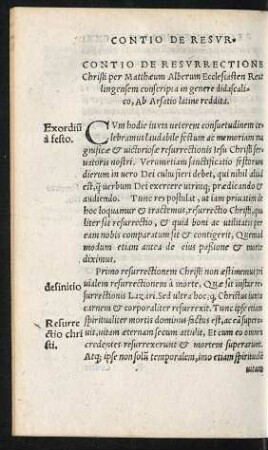 CONTIO DE RESVR•
CONTIO DE RESVRRECTIONE
Christi per Matthæum Alberum Ecclesiasten Reut
lingensem conscripta in genere didascali-
co, Ab Arsatio latine reddita.
Exordiū
à festo.
CVm hodie iuxta ueterem consuetudinem ce
lebramus laudabile festum ac memoriam ma
gnificæ & uictoriosæ resurrectionis Iesu Christi ser
uatoris nostri. Verumetiam sanctificatio festorum
dierum in uero Dei cultu fieri debet, qui nihil aliud
est, q̃ uerbum Dei exercere utrinq;, prædicando &
audiendo. Tunc res postulat, ut iam priuatim de
hoc loquamur & tractemus, resurrectio Christi, qua
liter sit resurrectio, & quid boni ac utilitatis per
eam nobis comparatum sit & contigerit, Quemad
modum etiam antea de eius passione & morte
diximus.
definitio
Primo resurrectionem Christi non æstimemus tri
uialem resurrectionem à morte, Quæ sit instar re-
surrectionis Lazari. Sed ultra hoc, q̃ Christus iuxta
carnem & corporaliter resurrexit. Tunc ipse etiam
Resurre
ctio chri
sti.
spiritualiter mortis dominus factus est, ac eā superā
uit, uitam æternam secum attulit, Et cum eo omnes
credentes resurrexerunt & mortem superarunt.
Atq; ipse non solū temporalem, imo etiam spiritualē
uitam